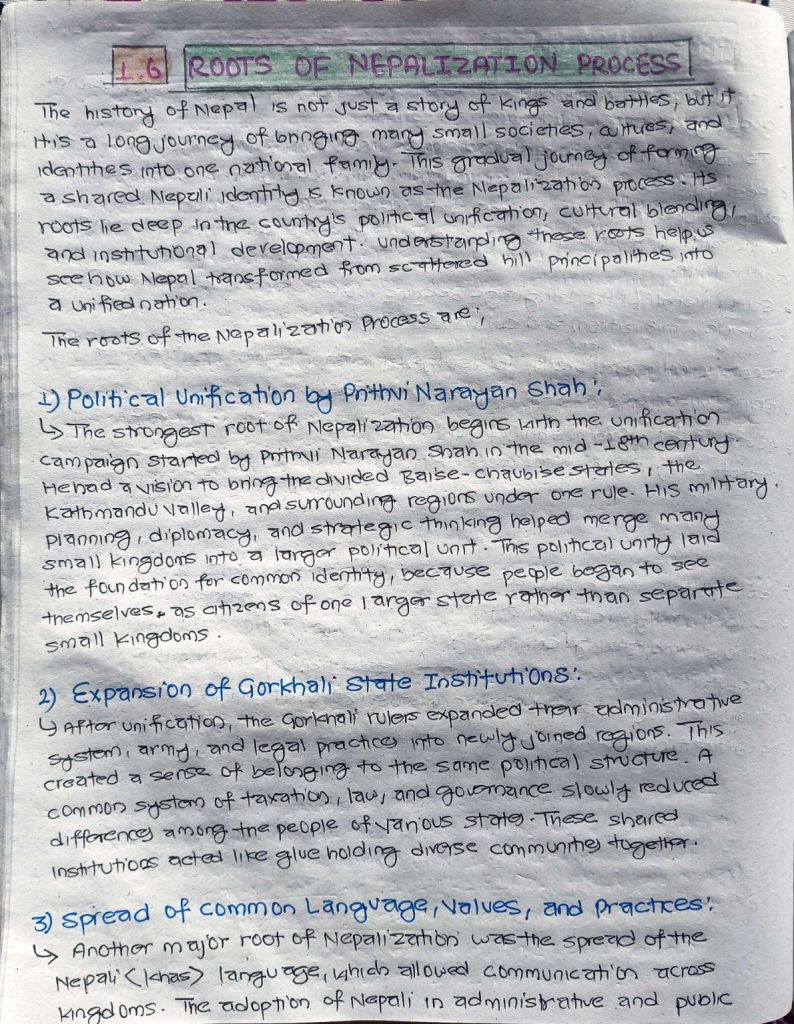 1.6 ROOTS OF NEPALIZATION PROCESS
The history of Nepal is not just a story of kings and battles, but it
It is a long journey of bringing many small societies, cultues, and
identities into one national family. This gradual journey of forming
a shared Nepali identity is known as the Nepalization process. Its
roots lie deep in the country's political unification, cultural blending,
and institutional development. understanding these roots help us
see how Nepal transformed from scattered hill principalities into
a unified nation.
The roots of the Nepalization Process are;
1) Political Unification by Prithvi Narayan Shah:
↳ The strongest root of Nepalization begins with the unification
campaign started by Prithvi Narayan Shah in the mid-18th century.
He had a vision to bring the divided Baise-chaubise states, the
Kathmandu valley, and surrounding regions under one rule. His military.
planning, diplomacy, and strategic thinking helped merge many
small kingdoms into a larger political unit. This political unity laid
the foundation for common identity, because people began to see
themselves as citizens of one larger state rather than separate
small kingdoms.
2) Expansion of Gorkhali State Institutions:
↳ After unification, the Gorkhali rulers expanded their administrative
system, army, and legal practices into newly joined regions. This
created a sense of belonging to the same political structure. A
common system of taxation, law, and governance slowly reduced
differences among the people of various states. These shared
institutions acted like glue holding diverse communities together.
3) Spread of common Language, Values, and Practices:
↳ Another major root of Nepalization was the spread of the
Nepali <Khas> language, which allowed communication across
kingdoms. The adoption of Nepali in administrative and public